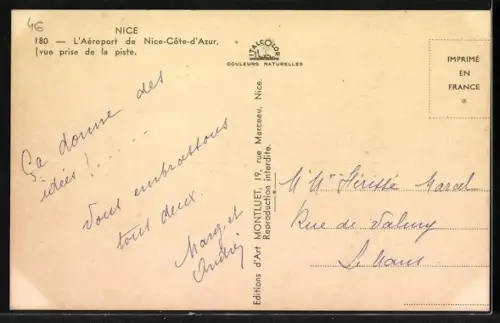 4E
NICE
180 — L'Aéroport de Nice-Côte-d'Azur,
(vue prise de la piste.
ITALCOLOR
COULEURS NATURELLES
IMPRIMÉ
EN
FRANCE
Ça donne des
idées !.....
Vous embrassons
tous deux.
Marg. et
André
Editions d'Art MONTLUET, 19, rue Marceau, Nice.
Reproduction interdite.
Mr Mme Marcel
Rue de Valmy
Le Mans